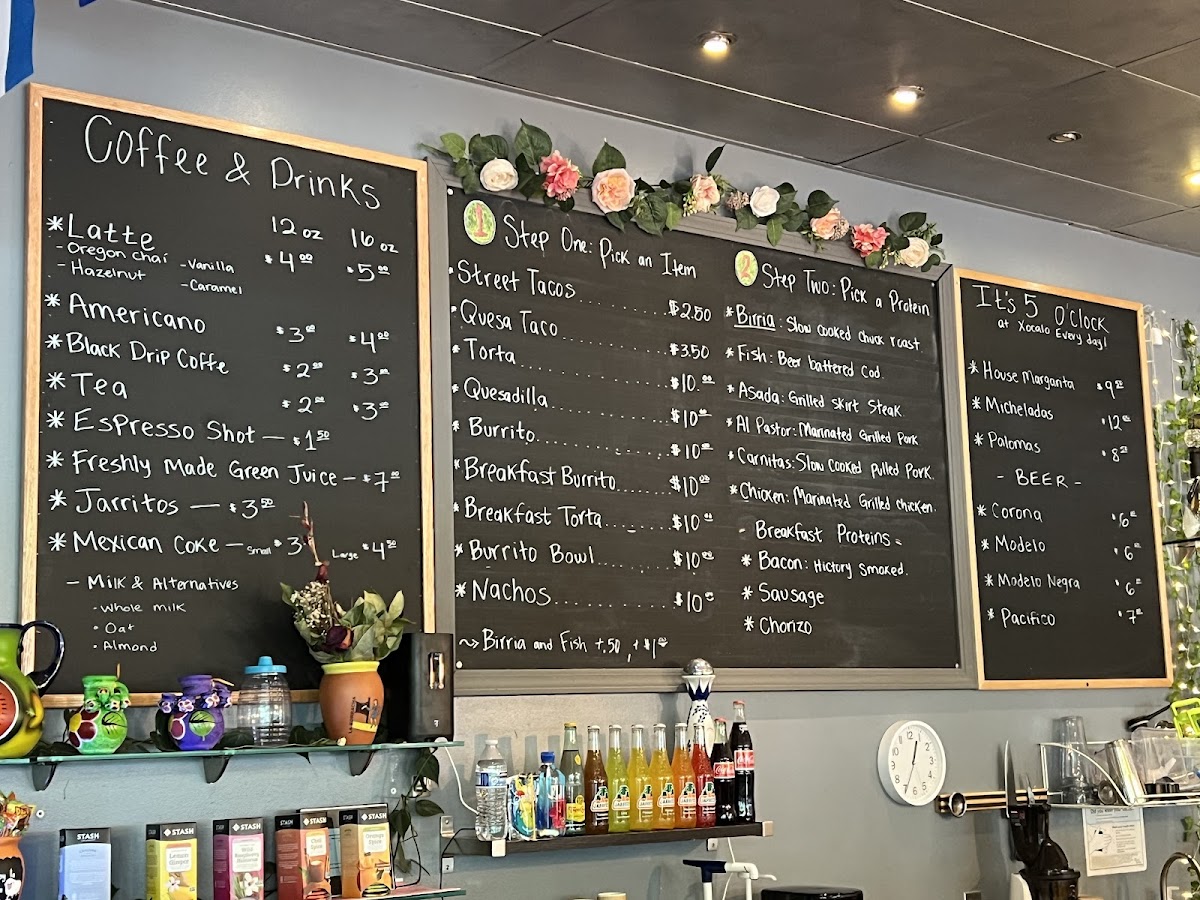 Coffee & Drinks
12 oz 16 oz
*Latte $4.00 $5.00
-Oregon chai -Vanilla
-Hazelnut -Caramel
*Americano $3.00 $4.00
*Black Drip Coffe $2.50 $3.00
*Tea $2.00 $3.00
*Espresso Shot — $1.50
*Freshly Made Green Juice — $7.00
*Jarritos — $3.50
*Mexican Coke — Small $3 Large $4.50
— Milk & Alternatives
• Whole milk
• Oat
• Almond
1 Step One: Pick an Item
•Street Tacos........ $2.50
•Quesa Taco........ $3.50
*Torta........ $10.00
*Quesadilla........ $10.00
*Burrito........ $10.00
*Breakfast Burrito........ $10.00
*Breakfast Torta........ $10.00
*Burrito Bowl........ $10.00
*Nachos........ $10.00
~> Birria and Fish +.50, +$1.00
2 Step Two: Pick a Protein
*Birria: Slow cooked chuck roast
*Fish: Beer battered Cod.
*Asada: Grilled Skirt Steak
*Al Pastor: Marinated Grilled Pork
*Carnitas: Slow Cooked Pulled Pork.
*Chicken: Marinated Grilled chicken.
- Breakfast Proteins -
*Bacon: Hictory Smoked.
*Sausage
*Chorizo
It's 5 O'clock
at Xocalo Every day!
*House Margarita $9.50
*Micheladas $12.00
*Palomas $8.50
- BEER -
*Corona $6.00
*Modelo $6.00
*Modelo Negra $6.00
*Pacifico $7.00
STASH
STASH
Lemon Ginger
STASH
Wild Raspberry Hibiscus
STASH
Chai Spice
STASH
Orange Spice
Coca-Cola
Coca-Cola